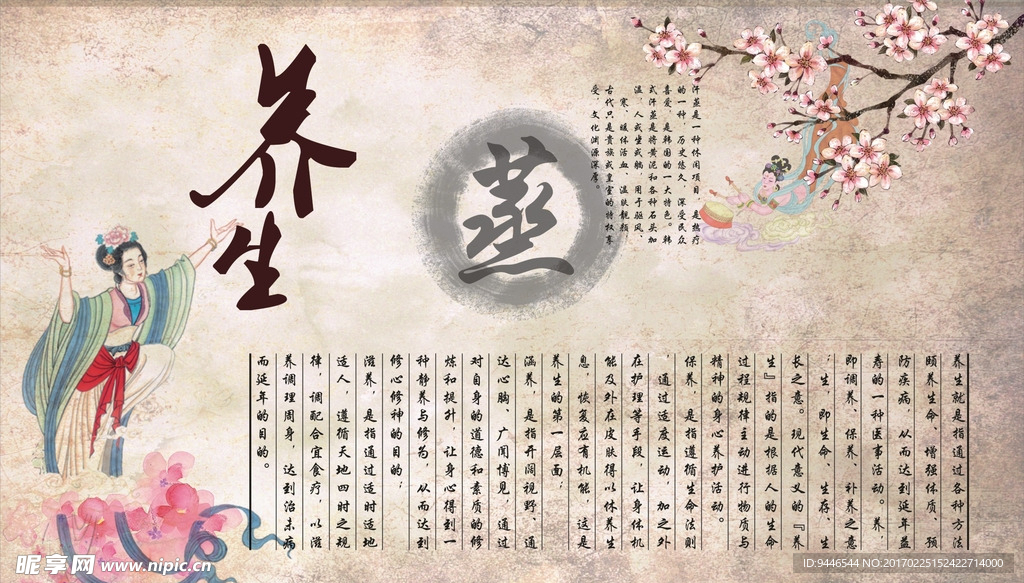 养生
蒸
汗蒸是一种休闲项目，是热疗
的一种，历史悠久，深受民众
喜爱，是韩国的一大特色。韩
式汗蒸是将黄泥和各种石头加
温，人或坐或躺，用于驱风、
寒、暖体活血、温肤靓颜，
古代只是贵族或皇室的特权享
受，文化渊源深厚。
养生就是指通过各种方法
颐养生命、增强体质、预
防疾病，从而达到延年益
寿的一种医事活动。养，
即调养、保养、补养之意
；生，即生命、生存、生
长之意。现代意义的『养
生』指的是根据人的生命
过程规律主动进行物质与
精神的身心养护活动。
保养，是指遵循生命法则
，通过适度运动，加之外
在护理等手段，让身体机
能及外在皮肤得以休养生
息，恢复应有机能，这是
养生的第一层面；
涵养，是指开阔视野、通
达心胸、广闻博见，通过
对自身的道德和素质的修
炼和提升，让身心得到一
种静养与修为，从而达到
修心修神的目的；
滋养，是指通过适时适地
适人，遵循天地四时之规
律，调配合宜食疗，以滋
养调理周身，达到治未病
而延年的目的。
昵享网 www.nipic.cn
ID:9446544 NO:20170225152422714000